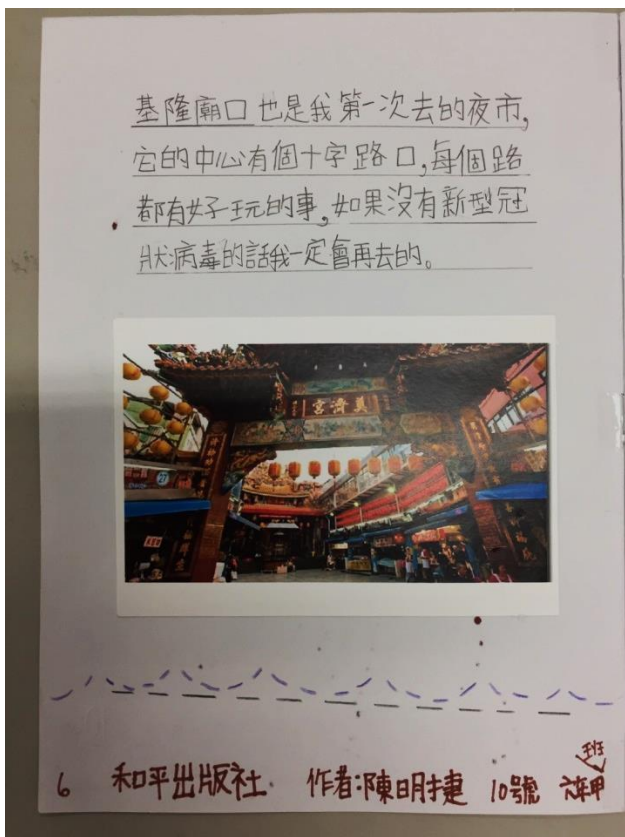 基隆廟口也是我第一次去的夜市,
它的中心有個十字路口,每個路
都有好玩的事,如果沒有新型冠
狀病毒的話我一定會再去的。
宮濟奠
27
班
6 和平出版社. 作者:陳明捷 10號 六年甲